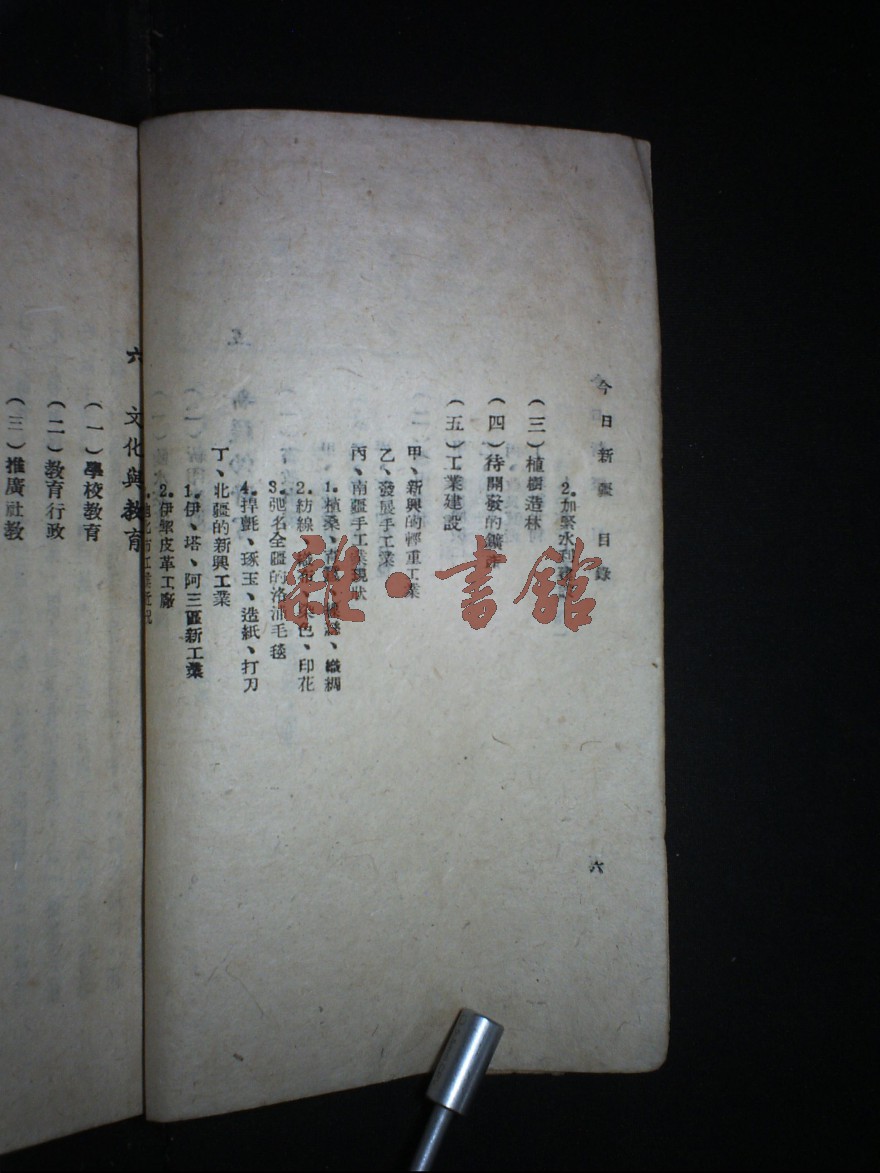 今日新疆 目錄
2.加緊水利
(三)植樹造林
(四)待開發的鑛產
(五)工業建設
甲、新興的輕重工業
乙、發展手工業
丙、南疆手工業現狀
1.植桑、育蠶、繅絲、織綢
2.紡線、織布、染色、印花
3.馳名全疆的洛浦毛毯
4.捍氈、琢玉、造紙、打刀
丁、北疆的新興工業
1.伊、塔、阿三區新工業
2.伊犂皮革工廠
六
六 文化與教育
(一)學校教育
(二)教育行政
(三)推廣社教
雜·書館